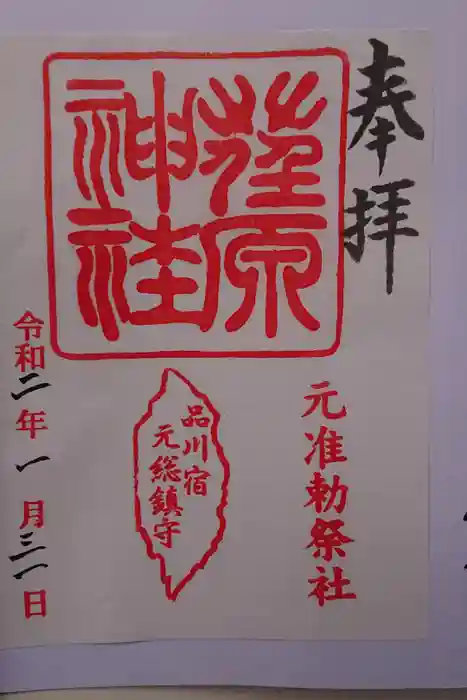 奉拝
荏原
神社
元准勅祭社
品川宿
元総鎮守
令和二年一月三一日